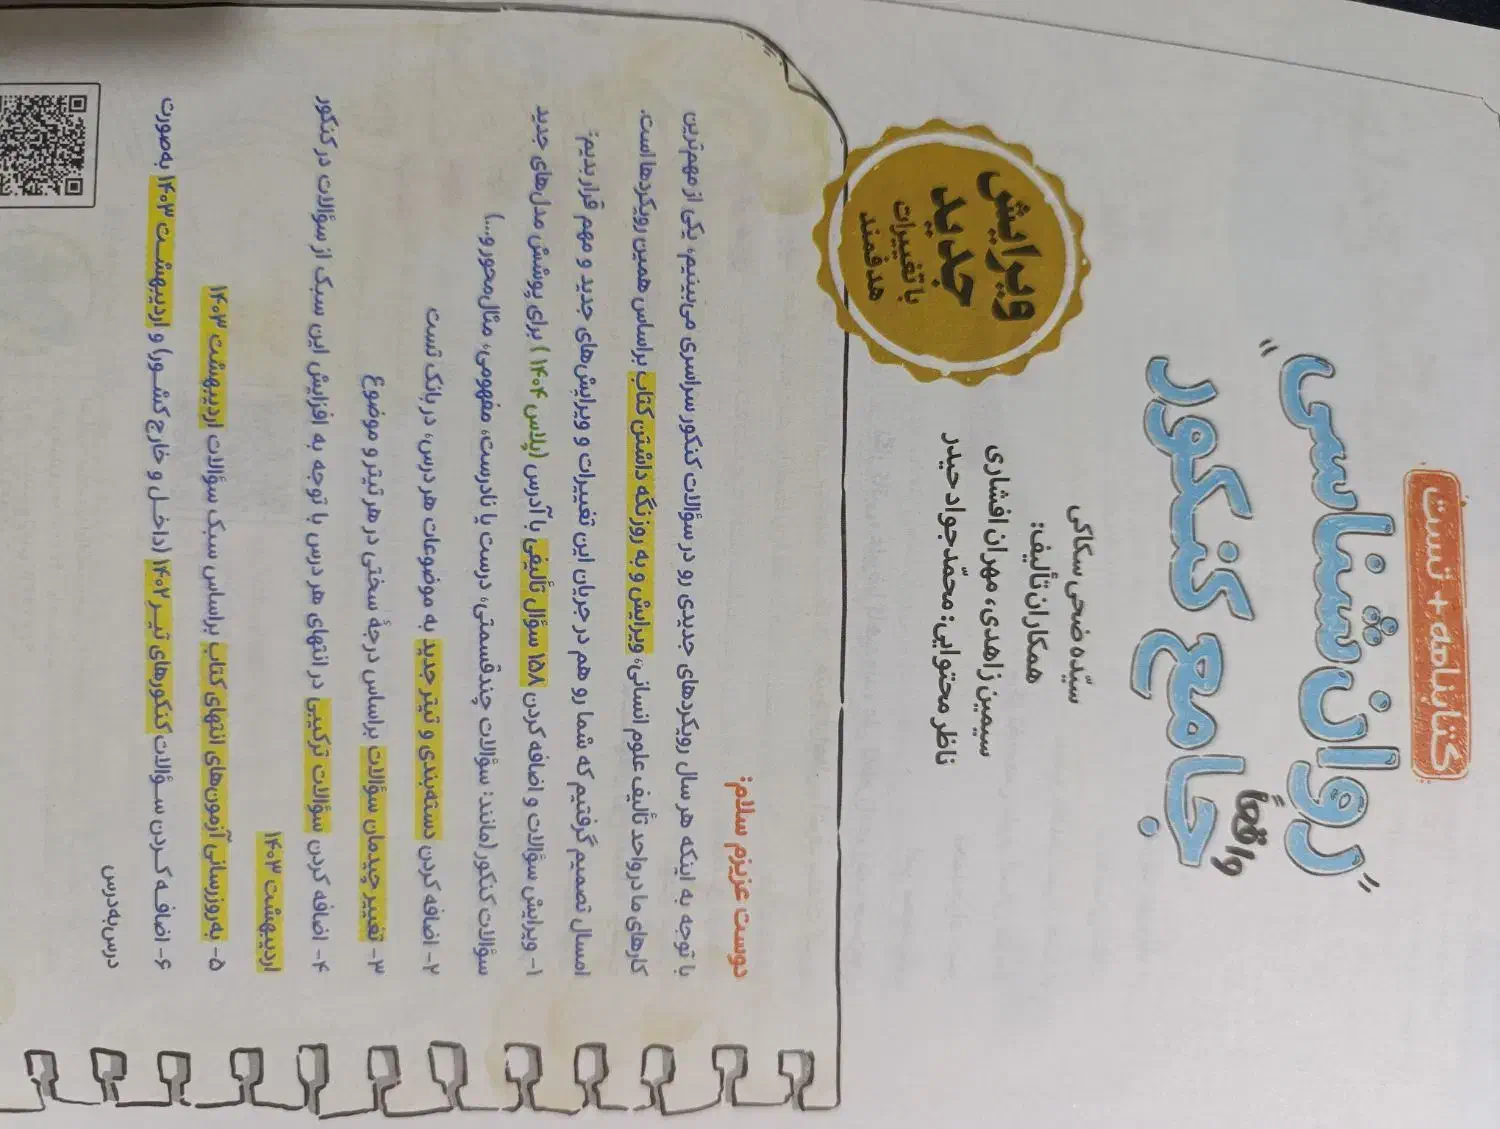 کتابنامه + تست
"روان‌شناسی"
واقعاً
جامع کنکور
سیّده ضحی سکاکی
همکاران تألیف:
سیمین زاهدی، مهران افشاری
ناظر محتوایی: محمّدجواد حیدر
ویرایش
جدید
با تغییرات
هدفمند
دوست عزیزم سلام:
با توجه به اینکه هر سال رویکردهای جدیدی رو در سؤالات کنکور سراسری می‌بینیم، یکی از مهم‌ترین
کارهای ما در واحد تألیف علوم انسانی، ویرایش و به روز نگه داشتن کتاب براساس همین رویکردها است.
امسال تصمیم گرفتیم که شما رو هم در جریان این تغییرات و ویرایش‌های جدید و مهم قرار بدیم:
۱- ویرایش سؤالات و اضافه کردن ۱۵۸ سؤال تألیفی با آدرس (پلاس ۱۴۰۴) برای پوشش مدل‌های جدید
سؤالات کنکور (مانند: سؤالات چند قسمتی، درست یا نادرست، مفهومی، مثال‌محور و...)
۲- اضافه کردن دسته‌بندی و تیتر جدید به موضوعات هر درس، در بانک تست
۳- تغییر چیدمان سؤالات براساس درجهٔ سختی در هر تیتر و موضوع
۴- اضافه کردن سؤالات ترکیبی در انتهای هر درس با توجه به افزایش این سبک از سؤالات در کنکور
اردیبهشت ۱۴۰۳
۵- به‌روزرسانی آزمون‌های انتهای کتاب براساس سبک سؤالات اردیبهشت ۱۴۰۳
۶- اضافه کردن سؤالات کنکورهای تیر ۱۴۰۲ (داخل و خارج کشور) و اردیبهشت ۱۴۰۳ به‌صورت
درس‌به‌درس